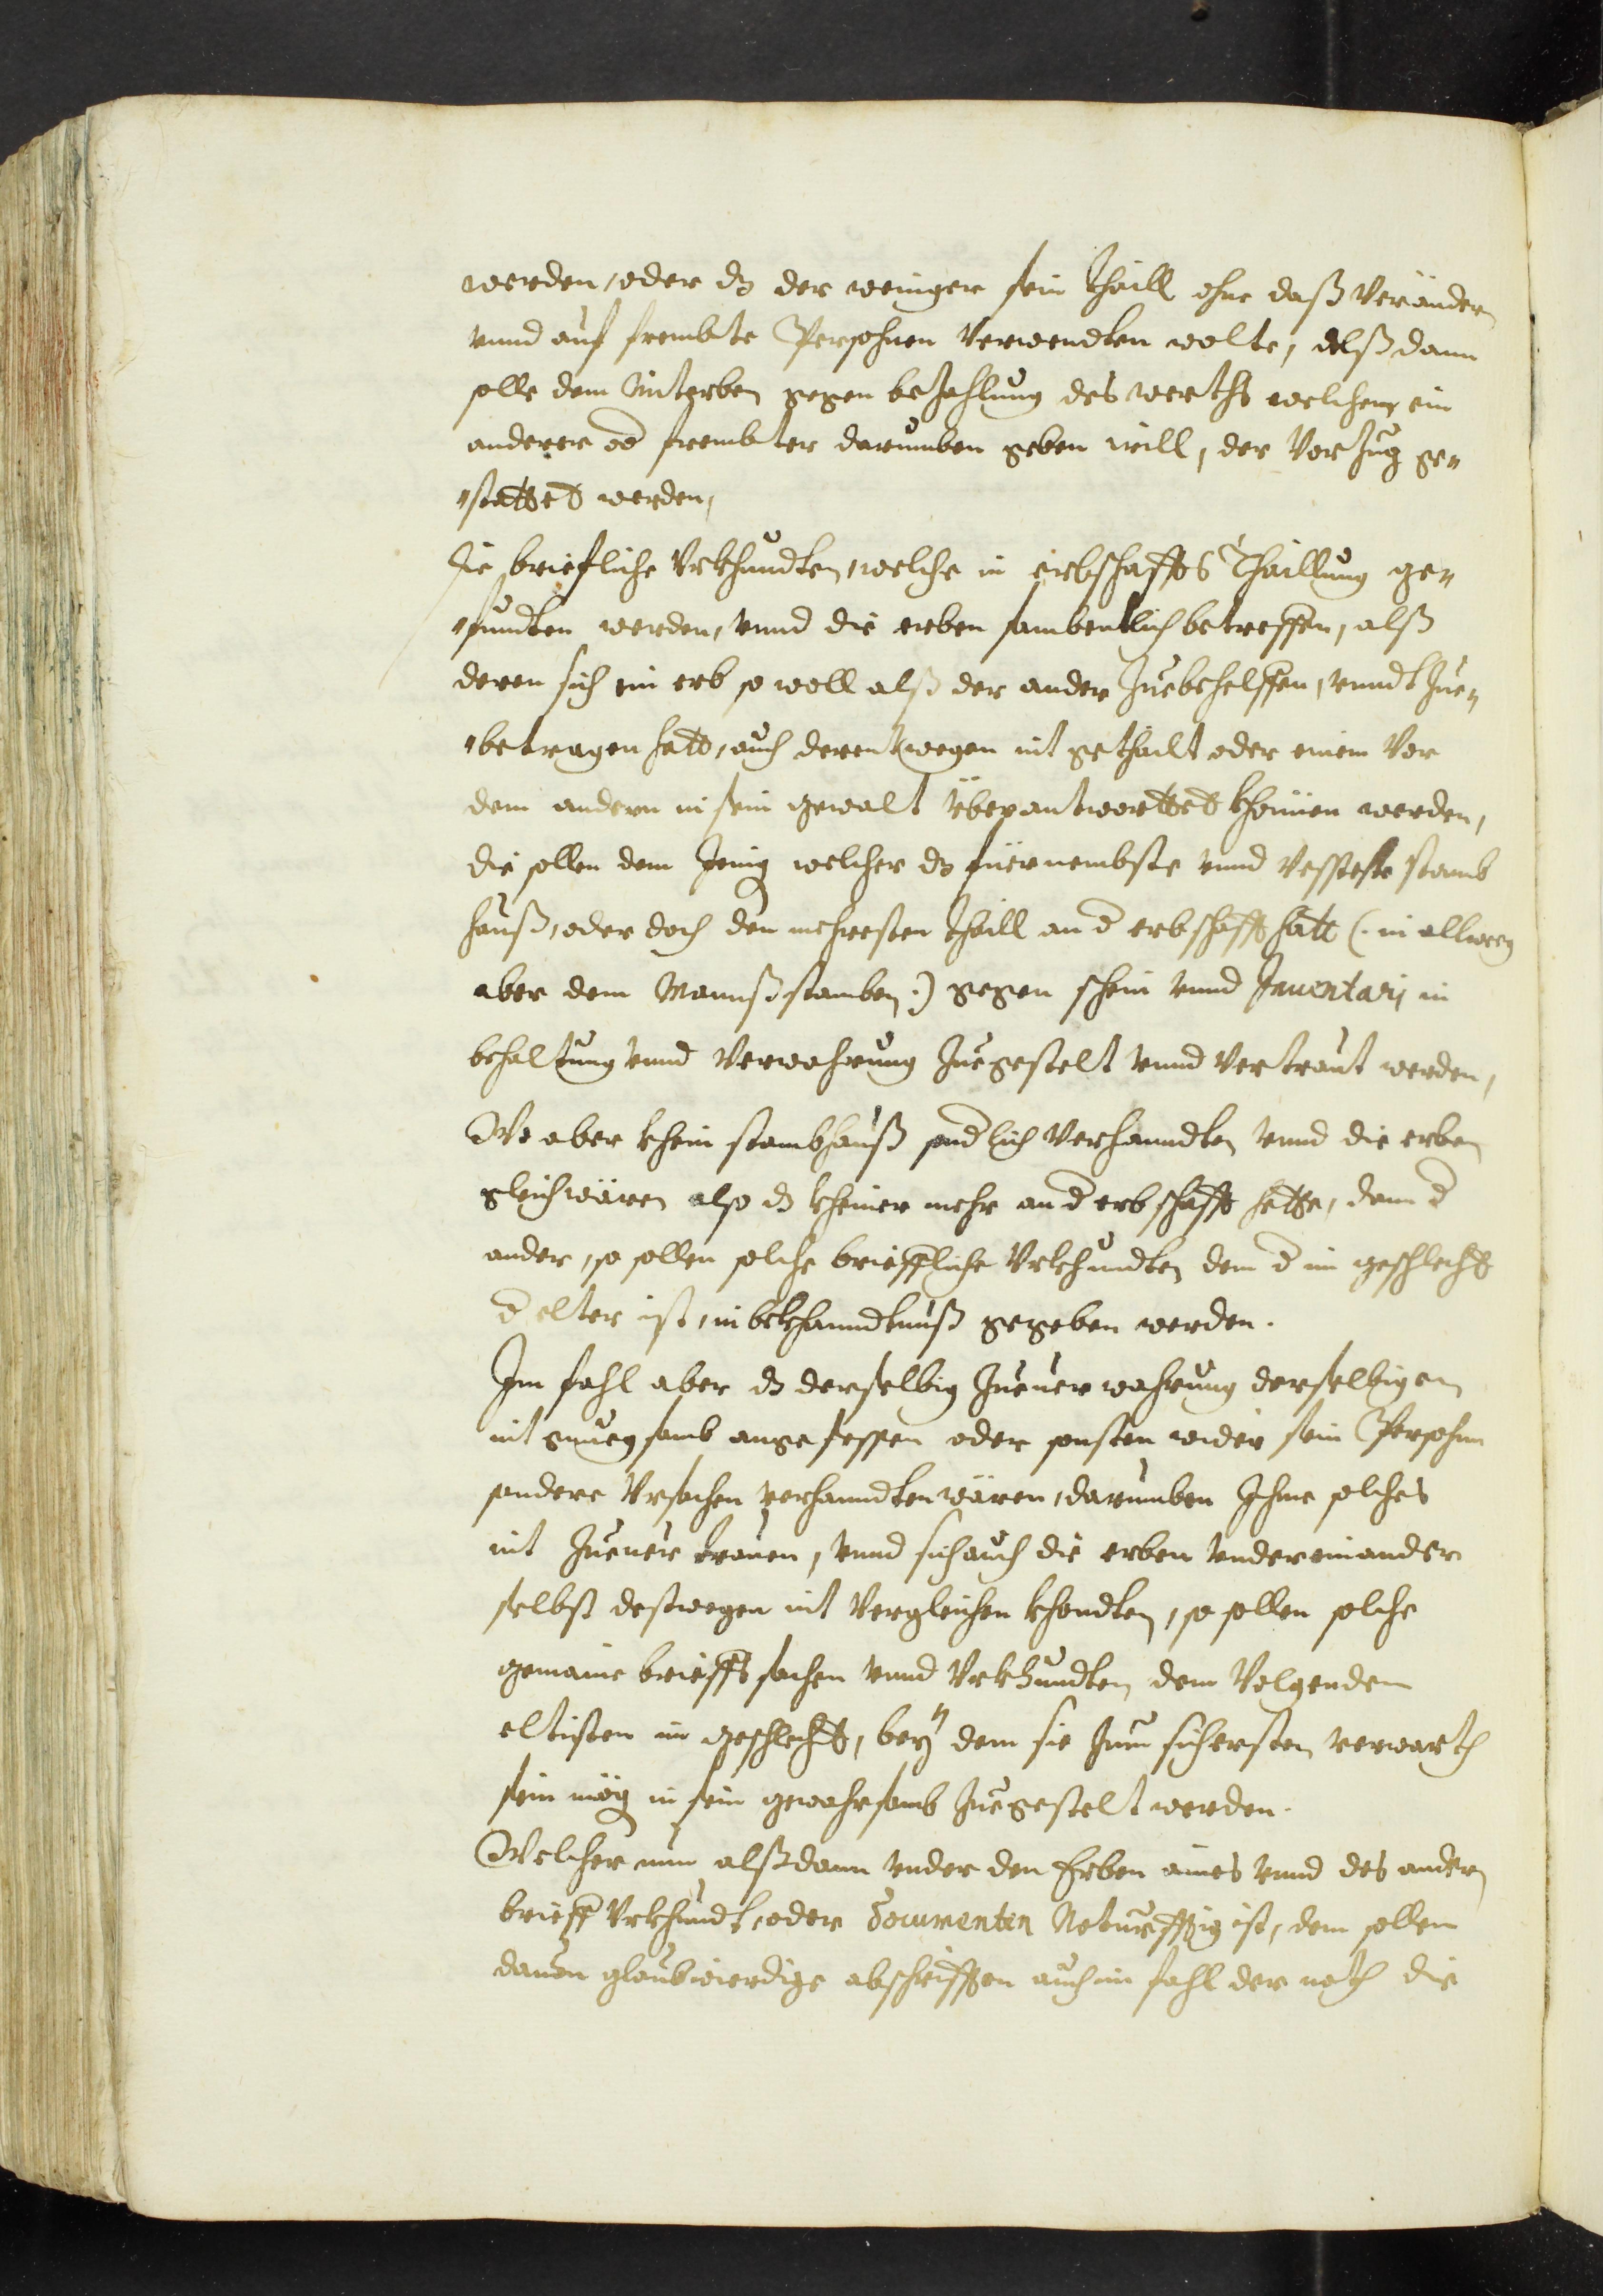 werden, oder dz der weniger sein thaill ohne daß verändern
vnnd auf frembte Persohnen verwendten wolte, alß dann
solle dem Miterben gegen bezahlung des werths welchen ein
anderer od frembter darumben geben will, der Vorzug ge„
„stattet werden,
Die briefliche Vrkhundten, welche in erbschaffts Thaillung ge„
„fundten werden, vnnd die erben sambentlich betreffen, alß
deren sich ein erb so woll alß der ander zuebehelffen, vnndt zue„
„betragen hatt, auch derentwegen nit gethailt oder einem vor
dem andern in sein gewalt überantworttet khönnen werden,
die sollen dem Jenig welcher dz füernembste vnnd vesteste stamb
hauß, oder doch den mehresten thaill an d erbschafft hatt (: in allweeg
aber dem Mannßstamben :) gegen schein vnnd Inuentarj in
behaltung vnnd verwahrung zuegestelt vnnd vertraut werden,
Wo aber khein stambhauß sondlich verhanndten vnnd die erben
gleich wären also dz kheiner mehr an d erbschafft hette, dann d
ander, so sollen solche brieffliche Vrkhundten dem d im geschlecht
d elter ist, in bekhanndtnuß gegeben werden.
Im fahl aber dz derselbig zueuerwahrung derselbigen
nit gnuegsamb angesessen oder sonsten wider sein Persohn
andere Vrsachen verhanndten wären, darumben Ihme solches
nit zueuertrauen, vnnd sich auch die erben vndereinander
selbst deßwegen nit vergleichen khondten, so sollen solche
gemaine brieffs sachen vnnd Vrkhundten dem volgenden
eltisten im geschlecht, beÿ dem sie zum sichersten verwarth
sein mög in sein gewahrsamb zuegestelt werden.
Welcher nun alßdann vnder den Erben aines vnnd des andern
brieff Vrkhundt, oder Documenten Noturfftig ist, dem sollen
dauon glaubwierdige abschrifften auch im fahl der noth die